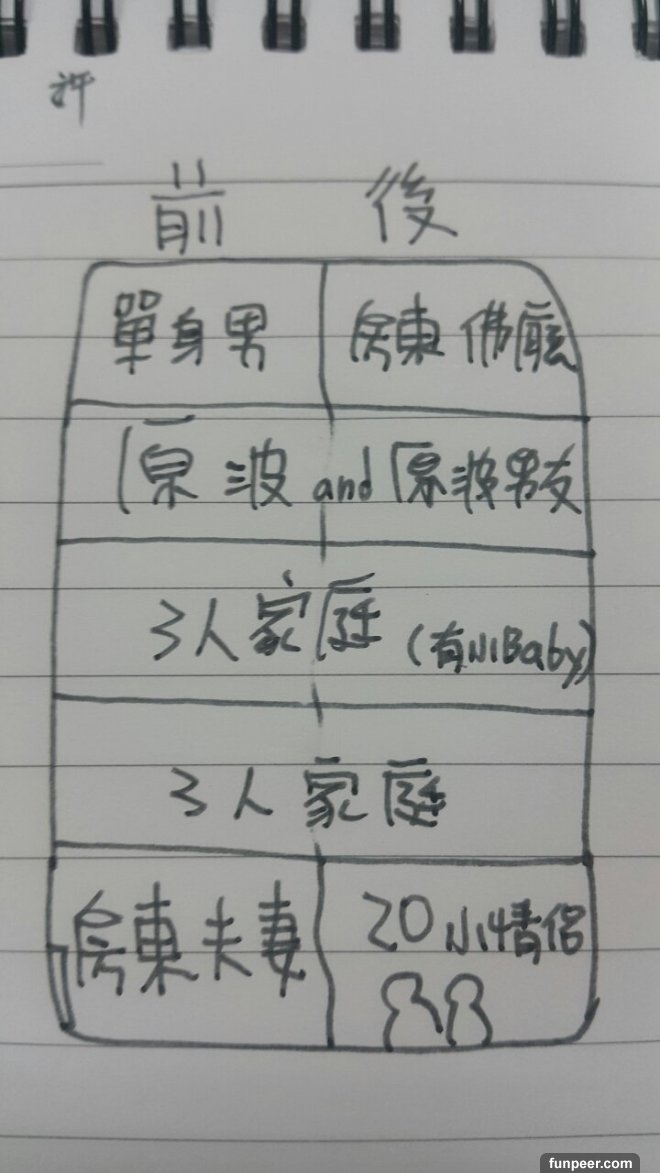 前 後
單身男 房東佛廳
原波 and 原波男友
3人家庭 (有小Baby)
3人家庭
房東夫妻 20小情侶
funpeer.com